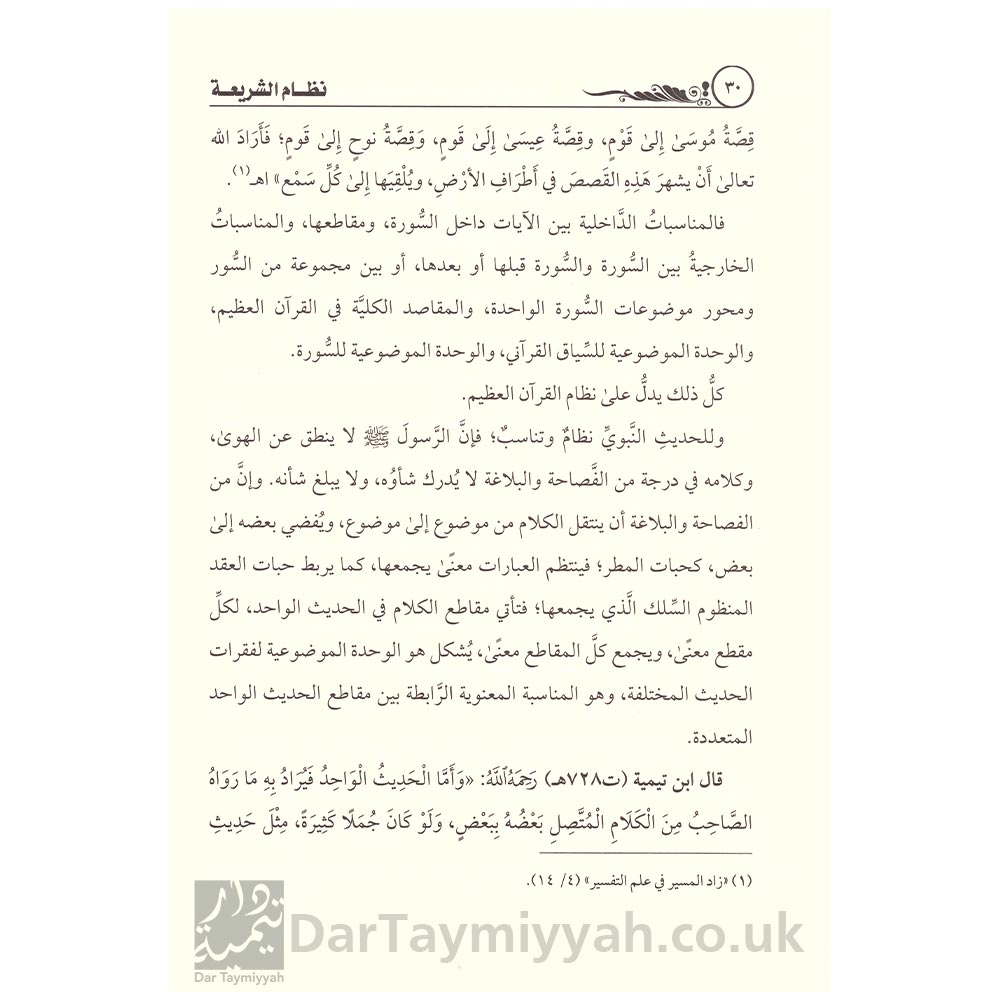 ٣٠
نظام الشريعة
قِصَّةُ مُوسَىٰ إلىٰ قَوْمٍ، وقِصَّةُ عِيسَىٰ إلَىٰ قَومٍ، وَقِصَّةُ نوحٍ إلىٰ قَومٍ؛ فَأَرَادَ الله
تعالىٰ أَنْ يشهرَ هَذِهِ القَصصَ في أَطْرَافِ الأرْضِ، ويُلْقِيَها إلىٰ كُلِّ سَمْع» اهـ(١).
فالمناسباتُ الدَّاخلية بين الآيات داخل السُّورة، ومقاطعها، والمناسباتُ
الخارجيةُ بين السُّورة والسُّورة قبلها أو بعدها، أو بين مجموعة من السُّور
ومحور موضوعات السُّورة الواحدة، والمقاصد الكليَّة في القرآن العظيم،
والوحدة الموضوعية للسِّياق القرآني، والوحدة الموضوعية للسُّورة.
كلُّ ذلك يدلُّ علىٰ نظام القرآن العظيم.
وللحديثِ النَّبويِّ نظامٌ وتناسبٌ؛ فإنَّ الرَّسولَ ﷺ لا ينطق عن الهوىٰ،
وكلامه في درجة من الفَّصاحة والبلاغة لا يُدرك شأوُه، ولا يبلغ شأنه. وإنَّ من
الفصاحة والبلاغة أن ينتقل الكلام من موضوع إلىٰ موضوع، ويُفضي بعضه إلىٰ
بعض، كحبات المطر؛ فينتظم العبارات معنًىٰ يجمعها، كما يربط حبات العقد
المنظوم السِّلك الَّذي يجمعها؛ فتأتي مقاطع الكلام في الحديث الواحد، لكلِّ
مقطع معنًىٰ، ويجمع كلَّ المقاطع معنًىٰ، يُشكل هو الوحدة الموضوعية لفقرات
الحديث المختلفة، وهو المناسبة المعنوية الرَّابطة بين مقاطع الحديث الواحد
المتعددة.
قال ابن تيمية (ت٧٢٨هـ) رَحِمَهُ اللَّهُ: «وَأَمَّا الْحَدِيثُ الْوَاحِدُ فَيُرَادُ بِهِ مَا رَوَاهُ
الصَّاحِبُ مِنَ الْكَلَامِ الْمُتَّصِلِ بَعْضُهُ بِبَعْضٍ، وَلَوْ كَانَ جُمَلًا كَثِيرَةً، مِثْلَ حَدِيثِ
(١) «زاد المسير في علم التفسير» (٤/ ١٤).
دار تيمية
Dar Taymiyyah
DarTaymiyyah.co.uk